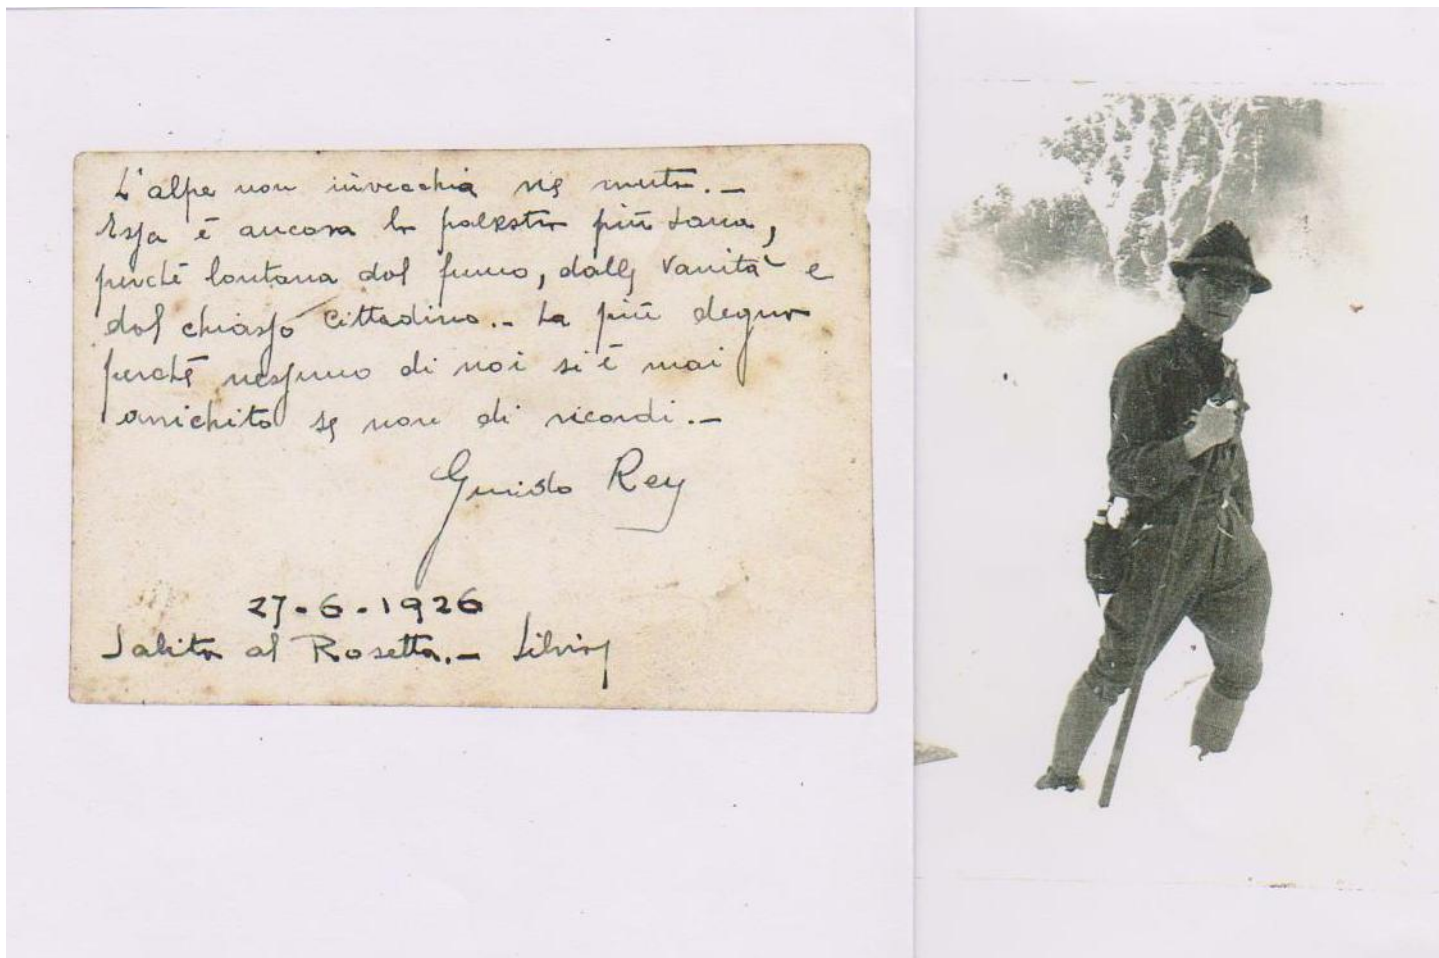 L'alpe non invecchia nè muta.-
Essa è ancora la palestra più sana,
perchè lontana dal fumo, dalle vanità e
dal chiasso cittadino.- La più degna
perchè nessuno di noi si è mai
arrichito se non di ricordi.-
Guido Rey
27-6-1926
Salita al Rosetta.- Silvio